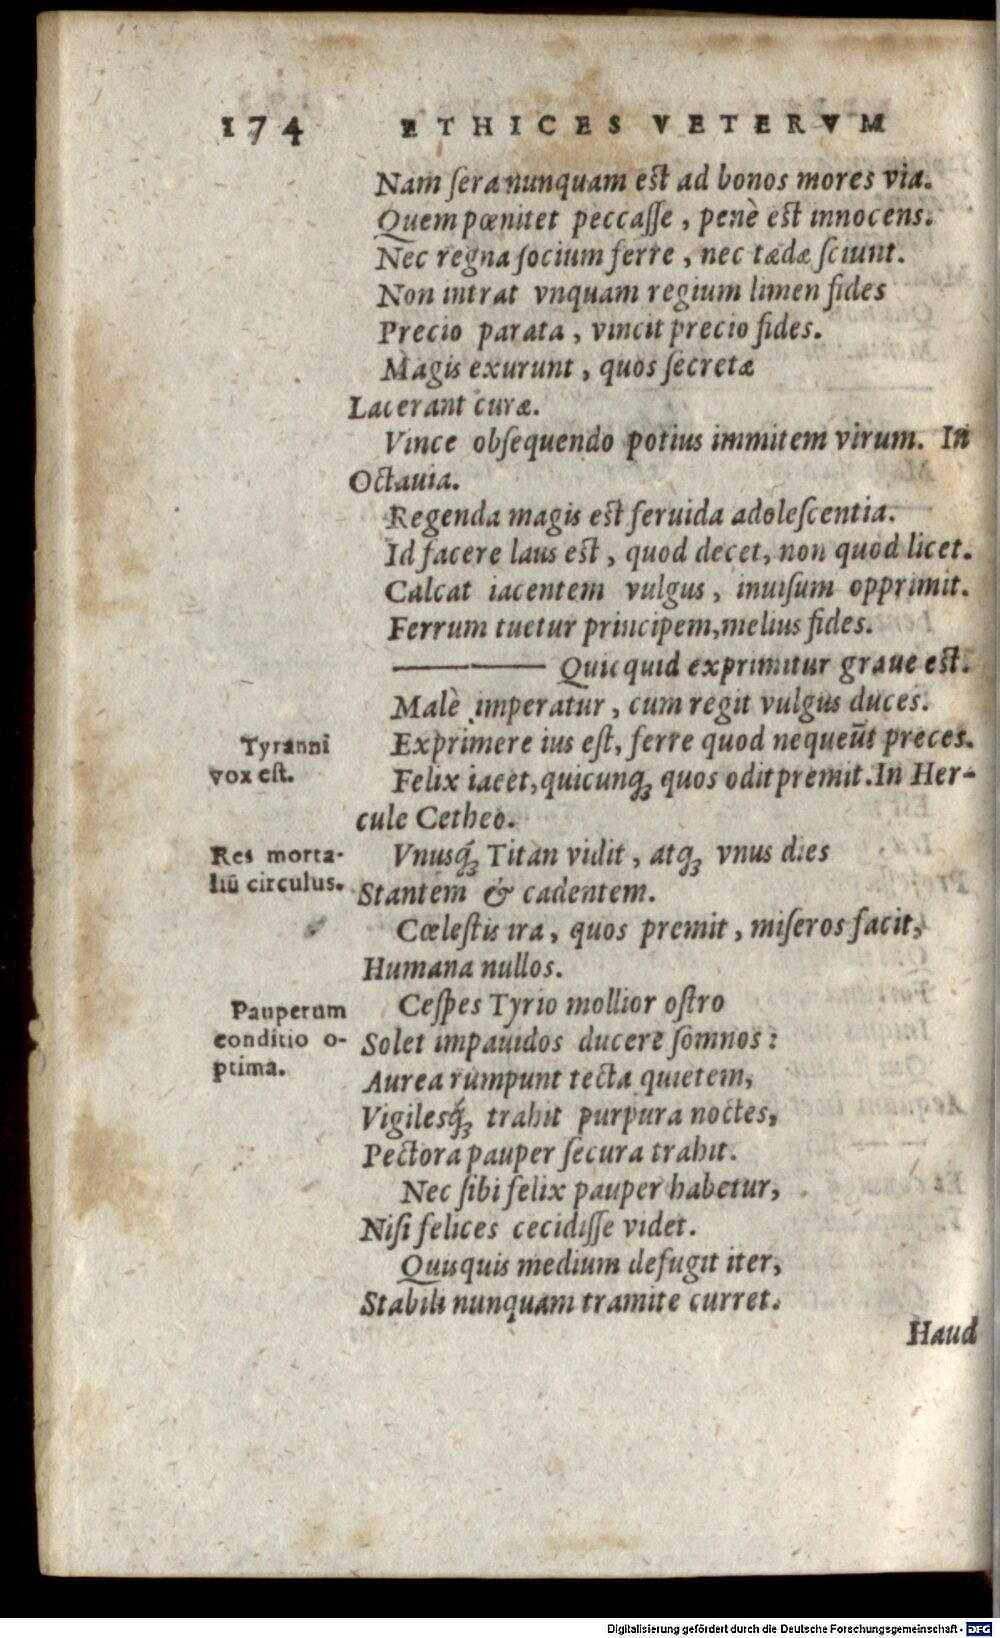 174 ETHICES VETERVM
Nam ſera nunquam eſt ad bonos mores via.
Quem pœnitet peccaſſe, penè eſt innocens.
Nec regna ſocium ferre, nec tædæ ſciunt.
Non intrat vnquam regium limen fides
Precio parata, vincit precio fides.
Magis exurunt, quos ſecretæ
Lacerant curæ.
Vince obſequendo potius immitem virum. In
Octauia.
Regenda magis eſt feruida adoleſcentia.
Id facere laus eſt, quod decet, non quod licet.
Calcat iacentem vulgus, inuiſum opprimit.
Ferrum tuetur principem, melius fides.
—— Quicquid exprimitur graue eſt.
Malè imperatur, cum regit vulgus duces.
Tyranni
vox eſt.
Exprimere ius eſt, ferre quod nequeūt preces.
Felix iacet, quicunqꝫ quos odit premit. In Her-
cule Cetheo.
Res morta-
liū circulus.
Vnusqꝫ́ Titan vidit, atqꝫ vnus dies
Stantem & cadentem.
Cœleſtis ira, quos premit, miſeros facit,
Humana nullos.
Pauperum
conditio o-
ptima.
Ceſpes Tyrio mollior oſtro
Solet impauidos ducere ſomnos:
Aurea rumpunt tecta quietem,
Vigilesqꝫ́ trahit purpura noctes,
Pectora pauper ſecura trahit.
Nec ſibi felix pauper habetur,
Niſi felices cecidiſſe videt.
Quisquis medium defugit iter,
Stabili nunquam tramite curret.
Haud
Digitalisierung gefördert durch die Deutsche Forschungsgemeinschaft - DFG